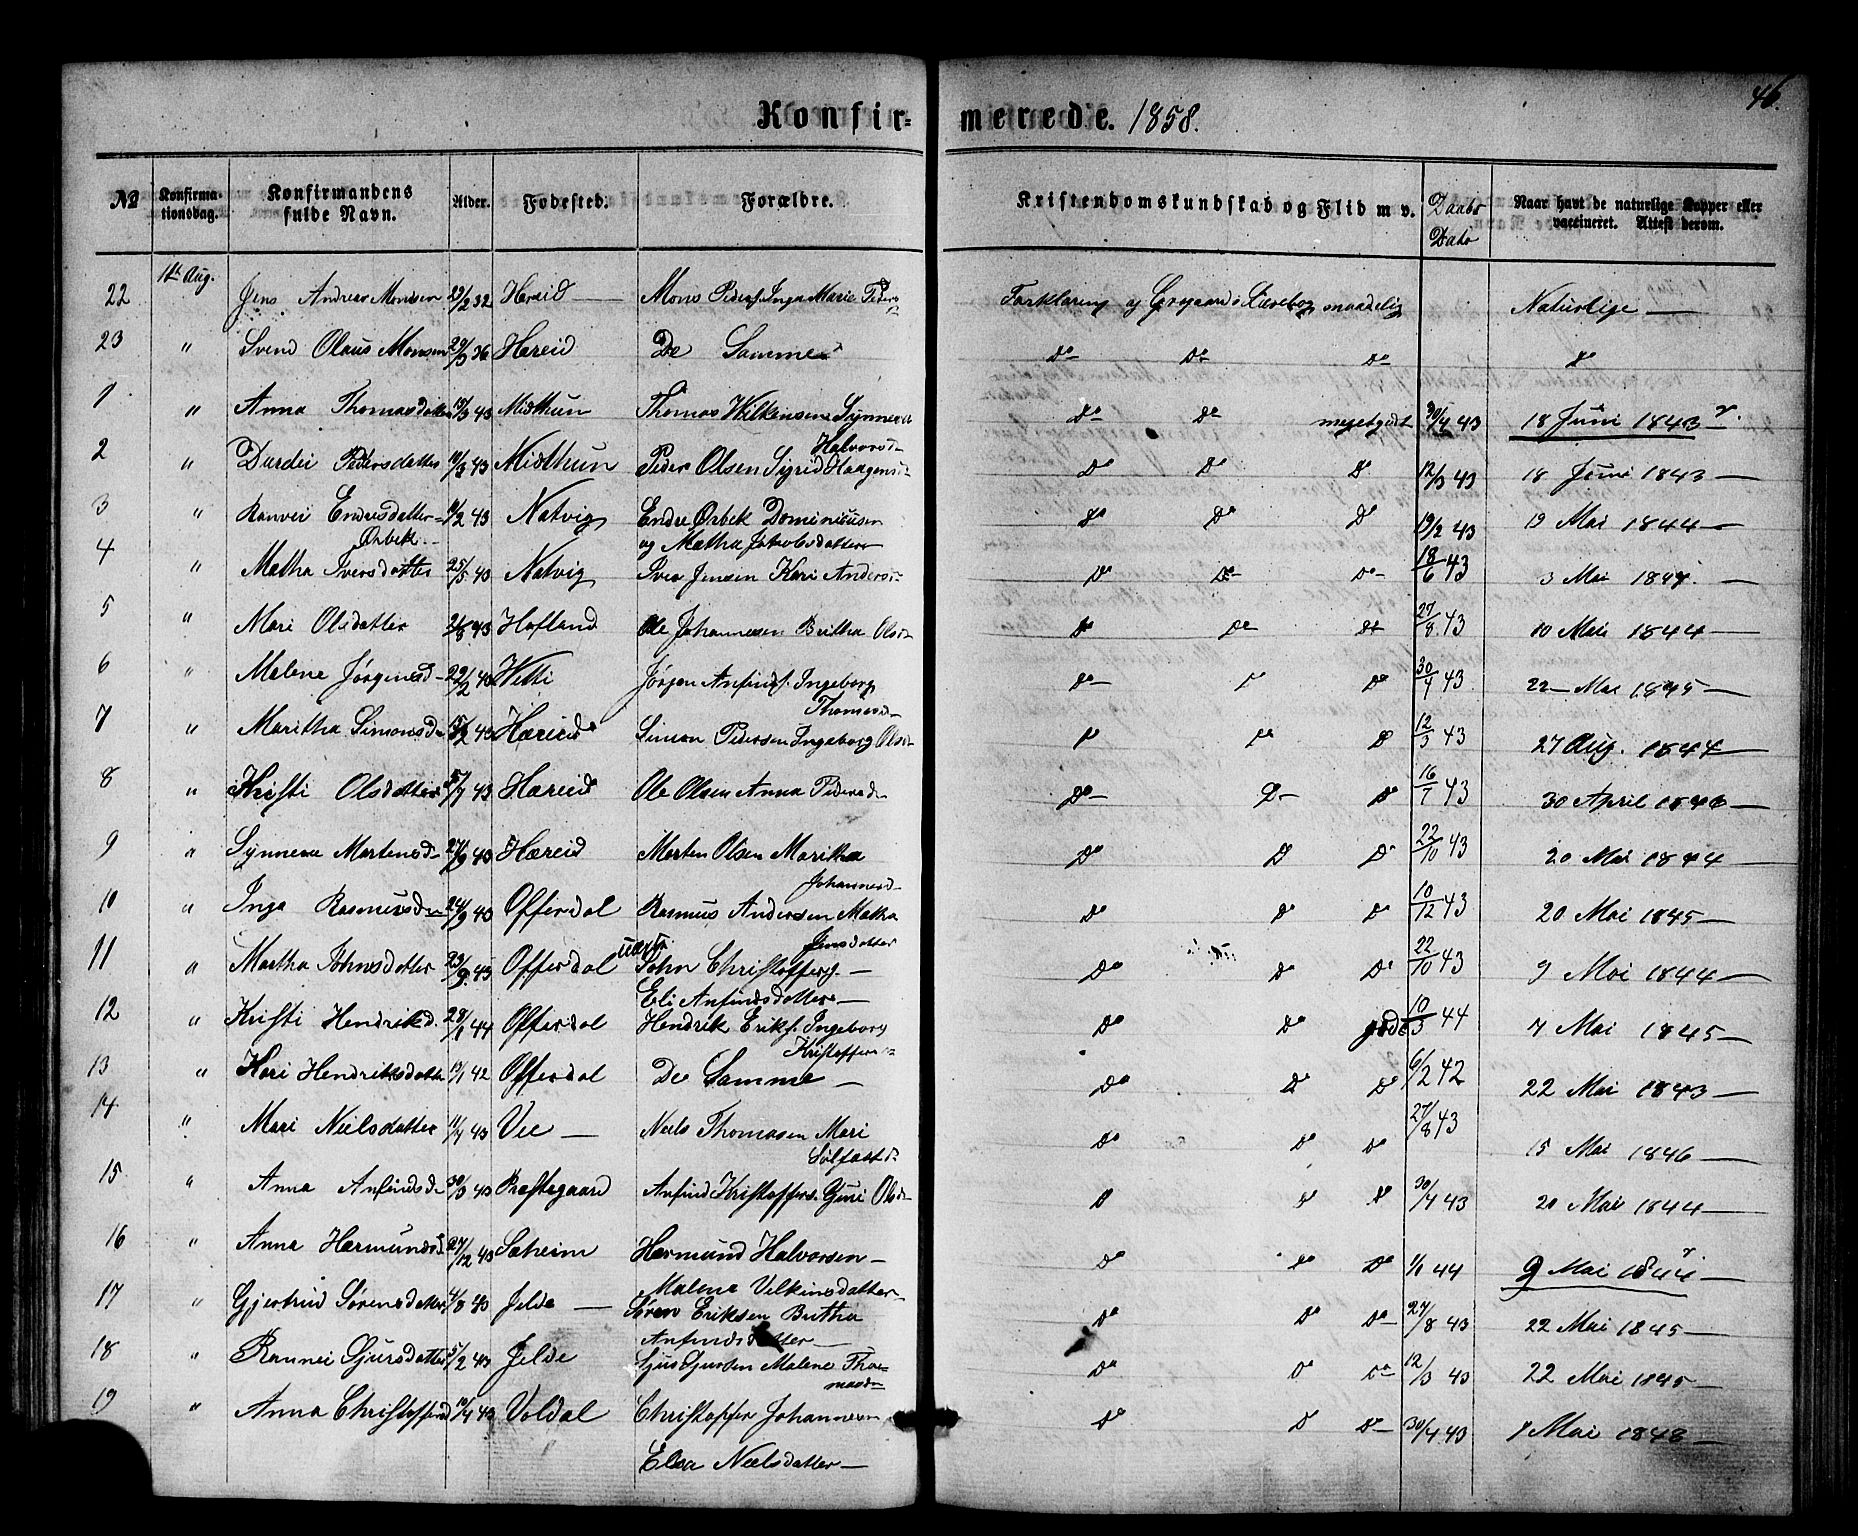 46.
Konfir-merede. 1858.
№ Konfirmationsdag. Konfirmandens fulde Navn. Alder. Fødested. Forælbre. Kristendomskundskab og Flid m v. Daabs Dato Naar havt de naturlige Kopper eller vaccineret. Attest derom.
22 1ste Aug. Jens Andreas Monsen 32 Hæreid — Mons Peders. Inga Marie Peders Forklaring og Lærebog maadelig Naturlige —
23 " Svend Olaus Monsen 36 Hæreid De Samme do do do do
1 " Anna Thomasdatter 43 Midthun Thomas Wilkensen Synneva Halvorsd- do do megetgodt 30/4 43 18 Juni 1843
2 " Durdei Pedersdatter 43 Midthun Peder Olsen Sigrid Haagensd- do do do 12/3 43 18 Juni 1843 —
3 " Ranvei Endresdatter Ørbek 43 Natvig Endre Ørbek Dominicusen og Mætha Jakobsdatter do do do 19/2 43 19 Mai 1844 —
4 " Metha Iversdatter 25/5 43 Natvig Iver Jensen Kari Anders- do do do 18/6 43 3 Mai 1844 —
5 " Mari Olsdatter 43 Hofland Ole Johannesen Britha Olsd do do do 27/8 43 10 Mai 1844 —
6 " Malene Jørgensd- 43 Vetti Jørgen Anfinds. Ingeborg Thomasd- do do do 30/4 43 22 Mai 1845 —
7 " Maritha Simonsd- 43 Hæreid Simon Pedersen Ingeborg Olsd do do do 12/3 43 27 Aug. 1844 —
8 " Kristi Olsdatter 5/7 43 Hæreid Ole Olsen Anna Pedersd- do do do 16/7 43 30 April 1846 —
9 " Synneva Martensd- 27/9 43 Hæreid Morten Olsen Maritha Johannesd- do do do 22/10 43 20 Mai 1844 —
10 " Inga Rasmusd- 24/9 43 Offerdal Rasmus Andersen Matha Jensdatter do do do 10/12 43 20 Mai 1845 —
11 " Martha Johnsdatter 23/9 43 Offerdal uægte John Christoffers. — Eli Anfindsdatter — do do 22/10 43 9 Mai 1844 —
12 " Kristi Hendriksd. 28/1 44 Offerdal Hendrik Eriks. Ingeborg Kristoffers- do do godt 10/3 44 7 Mai 1845 —
13 " Kari Hendriksdatter 19/1 42 Offerdal De Samme — do do do 6/2 42 22 Mai 1843 —
14 " Mari Nielsdatter 43 Vee — Niels Thomasen Mari Sølfæstd- do do do 27/8 43 15 Mai 1846 —
15 " Anna Anfindsd- 30/3 43 Præstegaard Anfind Kristoffers. Guri Olsd- do do do 30/4 43 20 Mai 1844 —
16 " Anna Hærmundsd. 27/12 43 Sæheim Hærmund Halvorsen — Malene Vilkinsdatter do do do 1/1 44 9 Mai 1844 —
17 " Gjertrud Sørensdatter 43 Jelde — Søren Eriksen Britha Anfindsdatter — do do do 27/8 43 22 Mai 1845 —
18 " Rannei Sjursdatter 5/2 43 Jelde Sjur Sjursen Malene Thomasd- do do do 12/3 43 22 Mai 1845 —
19 " Anna Christoffersd 43 Voldal Christopher Johannesen Elsa Nielsdatter — do do do 30/4 43 7 Mai 1848 —